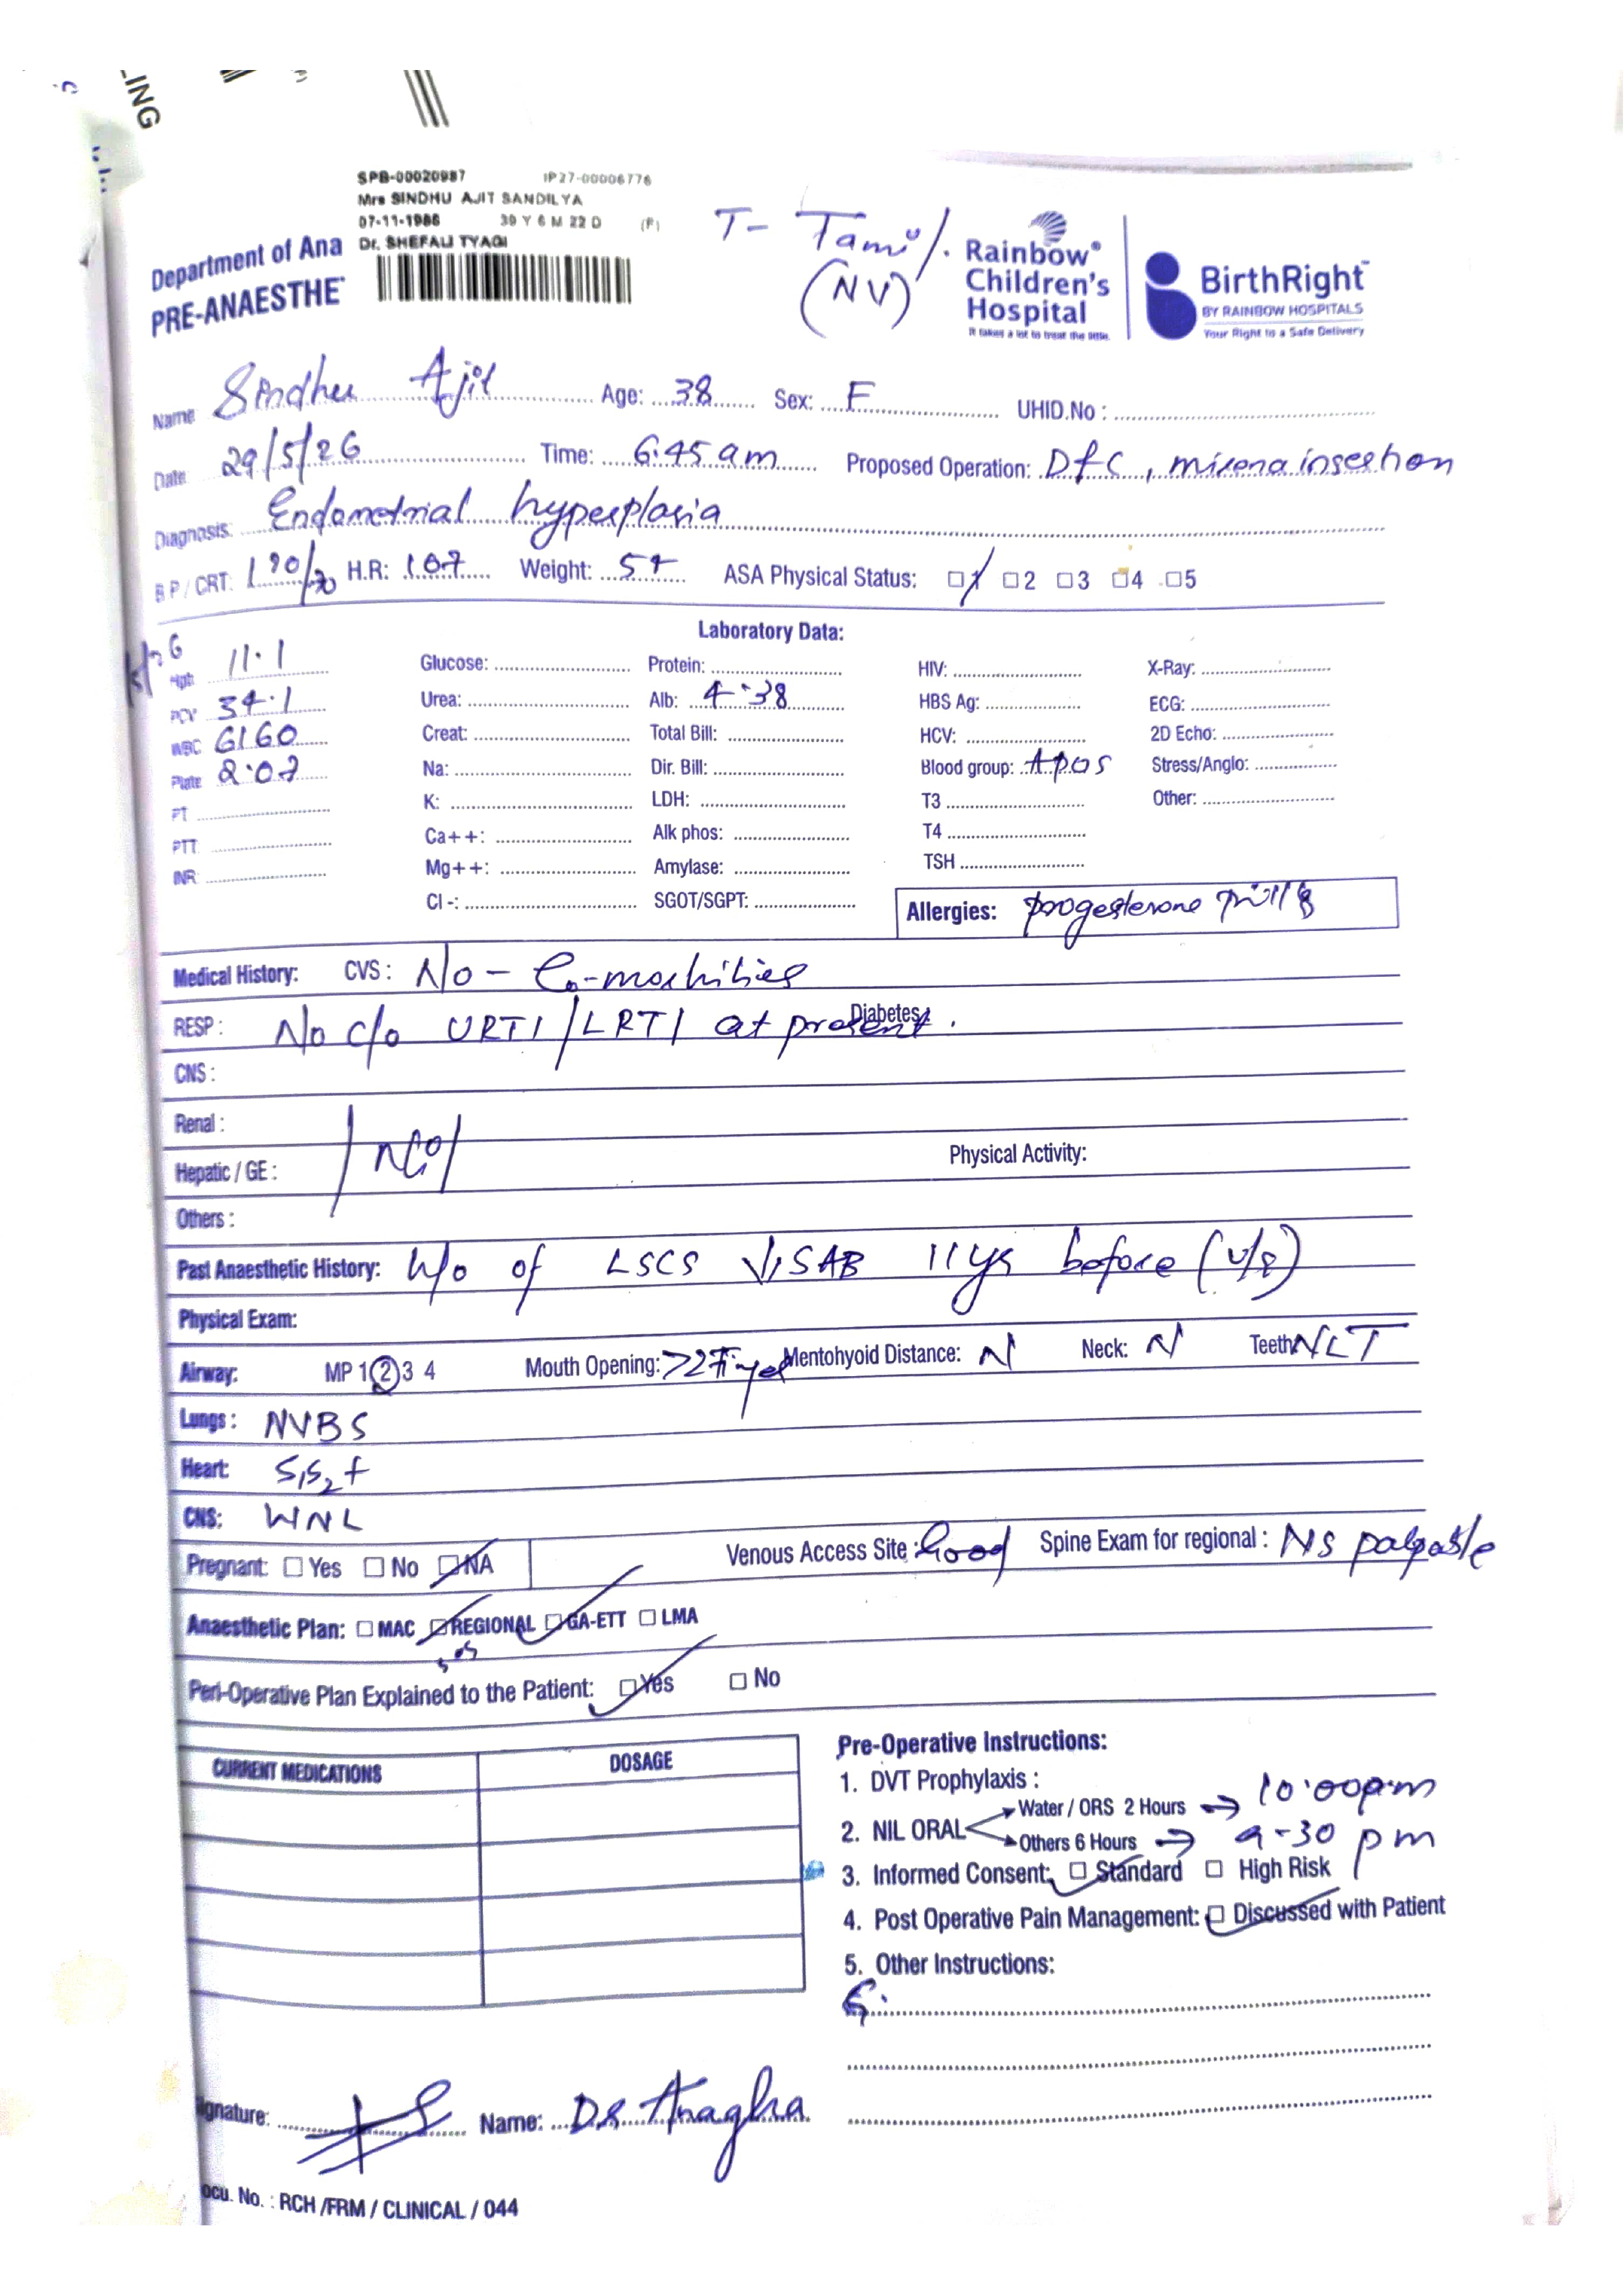 LING
SPB-00020987 IP27-00006776
Mrs SINDHU AJIT SANDILYA
07-11-1986 39 Y 6 M 22 D (F)
Dr. SHEFALI TYAGI
Department of Ana
PRE-ANAESTHE
T- Tamil
(NV)
Rainbow®
Children's
Hospital
It takes a lot to treat the little.
BirthRight
BY RAINBOW HOSPITALS
Your Right to a Safe Delivery
Name Sindhu Ajit Age: 38 Sex: F UHID.No :
Date 29/5/26 Time: 6.45 am Proposed Operation: D&C, mirena insertion
Diagnosis: Endometrial hyperplasia
B.P / CRT: /70 H.R: 107 Weight: ASA Physical Status: ☑1 ☐2 ☐3 ☐4 ☐5
Laboratory Data:
Hgb 11.1 Glucose: Protein: HIV: X-Ray:
PCV 34.1 Urea: Alb: 4.38 HBS Ag: ECG:
WBC 6160 Creat: Total Bill: HCV: 2D Echo:
Plate 2.07 Na: Dir. Bill: Blood group: A pos Stress/Anglo:
PT K: LDH: T3 Other:
PTT Ca++: Alk phos: T4
INR Mg++: Amylase: TSH
Cl -: SGOT/SGPT: Allergies: progesterone pills
Medical History: CVS : No - Co-morbities
RESP : No c/o URTI/LRTI at present. Diabetes
CNS :
Renal :
Hepatic / GE : Physical Activity:
Others :
Past Anaesthetic History: h/o of LSCS SAB 11ys before (u/e)
Physical Exam:
Airway: MP 1 2 3 4 Mouth Opening: >2 Finger Mentohyoid Distance: N Neck: N Teeth NLT
Lungs : NVBS
Heart: S1S2 +
CNS: WNL
Pregnant: ☐ Yes ☐ No ☑ NA Venous Access Site : Good Spine Exam for regional : NS palpable
Anaesthetic Plan: ☐ MAC ☑ REGIONAL ☑ GA-ETT ☐ LMA
sos
Peri-Operative Plan Explained to the Patient: ☑ Yes ☐ No
CURRENT MEDICATIONS DOSAGE
Pre-Operative Instructions:
1. DVT Prophylaxis :
2. NIL ORAL Water / ORS 2 Hours → 10.00pm
Others 6 Hours → 9-30 pm
3. Informed Consent: ☑ Standard ☐ High Risk
4. Post Operative Pain Management: ☑ Discussed with Patient
5. Other Instructions:
Signature: Name: Dr Anagha
ocu. No. : RCH /FRM / CLINICAL / 044